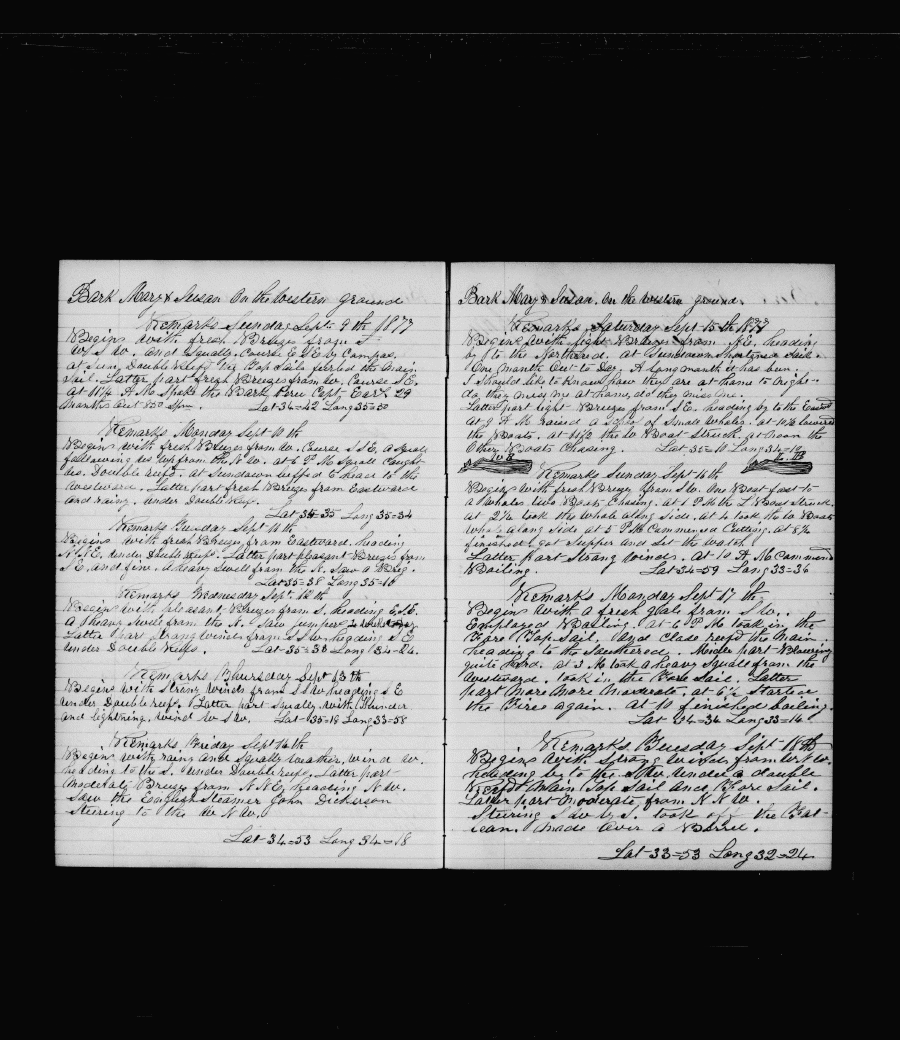 Bark Mary & Susan On the Western ground
Remarks Sunday Sept 9th 1877
Begins with fresh Breezes from S.
W.S.W. and Squally. Course E.S.E. by Compas.
at Sundown Double Reeft the Top Sails furled the Main
Sail. Latter part fresh Breezes from W. Course S.E.
at 11 1/2 A.M. Spoke the Bark Peru Capt. Earl 29
Months Out 850 Spm. Lat 34=42 Long 35=50
Remarks Monday Sept 10th
Begins with fresh Breezes from W. Course S.S.E. a Squall
following us up from the N.W. at 6 P.M. Squall Caught
us. Double reefs. at Sundown to the
Westward. Latter part fresh Breezes from Eastward
and rainy. under Double Reefs.
Lat 35=35 Long 35=34
Remarks Tuesday Sept 11th
Begins with fresh Breezes from Eastward, heading
N.N.E. under Double Reefs. Latter part pleasant Breezes from
S.E. and fine. A heavy Swell from the N. Saw a Brig.
Lat 35=38 Long 35=10
Remarks Wednesday Sept 12th
Begins with pleasant Breezes from S. heading E.S.E.
A heavy Swell from the N. Saw jumpers
Latter part Strong winds from S.S.W. heading S.E.
under Double Reefs. Lat 35=38 Long 34=24.
Remarks Thursday Sept 13th
Begins with Strong Winds from S.S.W. heading S.E
under Double reefs. Latter part Squally with Thunder
and lightning. Wind W.S.W. Lat 35=19 Long 33=58
Remarks Friday Sept 14th
Begins with rainy and Squally weather. Wind W.
heading to the S. under Double reefs. Latter part
Moderate Breezes from N.N.E. heading N.W.
Saw the English Steamer John Dickerson
Steering to the W.N.W.
Lat 34=53 Long 34=18
Bark Mary & Susan. On the Western ground.
Remarks Saturday Sept 15th 1877
Begins with light Breezes from N.E. heading
by to the Northward. at Sundown Shortened Sail.
One Month Out to Day. A long month it has been.
I Should like to Know how they are at home to night.
do they miss me at home, do they miss me.
Latter part light Breezes from S.E. heading by to the Eastward
at 9 A.M. raised a School of Small Whales. at 10 1/2 lowered
the Boats. at 11 1/2 the W. Boat Struck. at noon the
Other Boats Chasing. Lat 35=10 Long 34=12
W B B
Remarks Sunday Sept 16th
Begins with fresh Breezes from S.W. One Boat fast to
a Whale two Boats Chasing. at 1 P.M. the L Boat Struck.
at 2 1/2 took the Whale along Side. at 4 took the W Boats
Whale along Side at 5 P.M. Commenced Cutting. at 8 1/2
finished got Supper and Set the Watch.
Latter part Strong Winds. At 10 A.M. Commenced
Boiling. Lat 34=59 Long 33=36
Remarks Monday Sept 17th
Begins with a fresh gale from S.W.
Employed Boiling. at 6 P.M. took in the
Fore Top Sail. And Close reeft the Main.
heading to the Southward. Middle part Blowing
quite hard. at 3. took a heavy Squall from the
Westward. took in the Fore Sail. Latter
part More More Moderate. at 6 1/2 Started
the Fires again. At 10 finished boiling.
Lat 34=34 Long 33=16
Remarks Tuesday Sept 18th
Begins with Strong Winds from W.N.W.
heading by to the S.W. under a double
Reeft Main Top Sail and Fore Sail.
Latter part Moderate from N.N.W.
Steering S.W. by S. took off the Fat-
lean. Made Over a Barrel.
Lat 33=53 Long 32=24